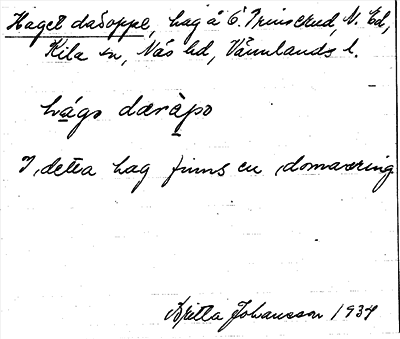 Haget daroppe, hag å Ö. Trinserud, N. Ed,
Kila sn, Näs hd, Värmlands l.
hago dæràpo
I detta hag finns en domarring
Britta Johansson 1934